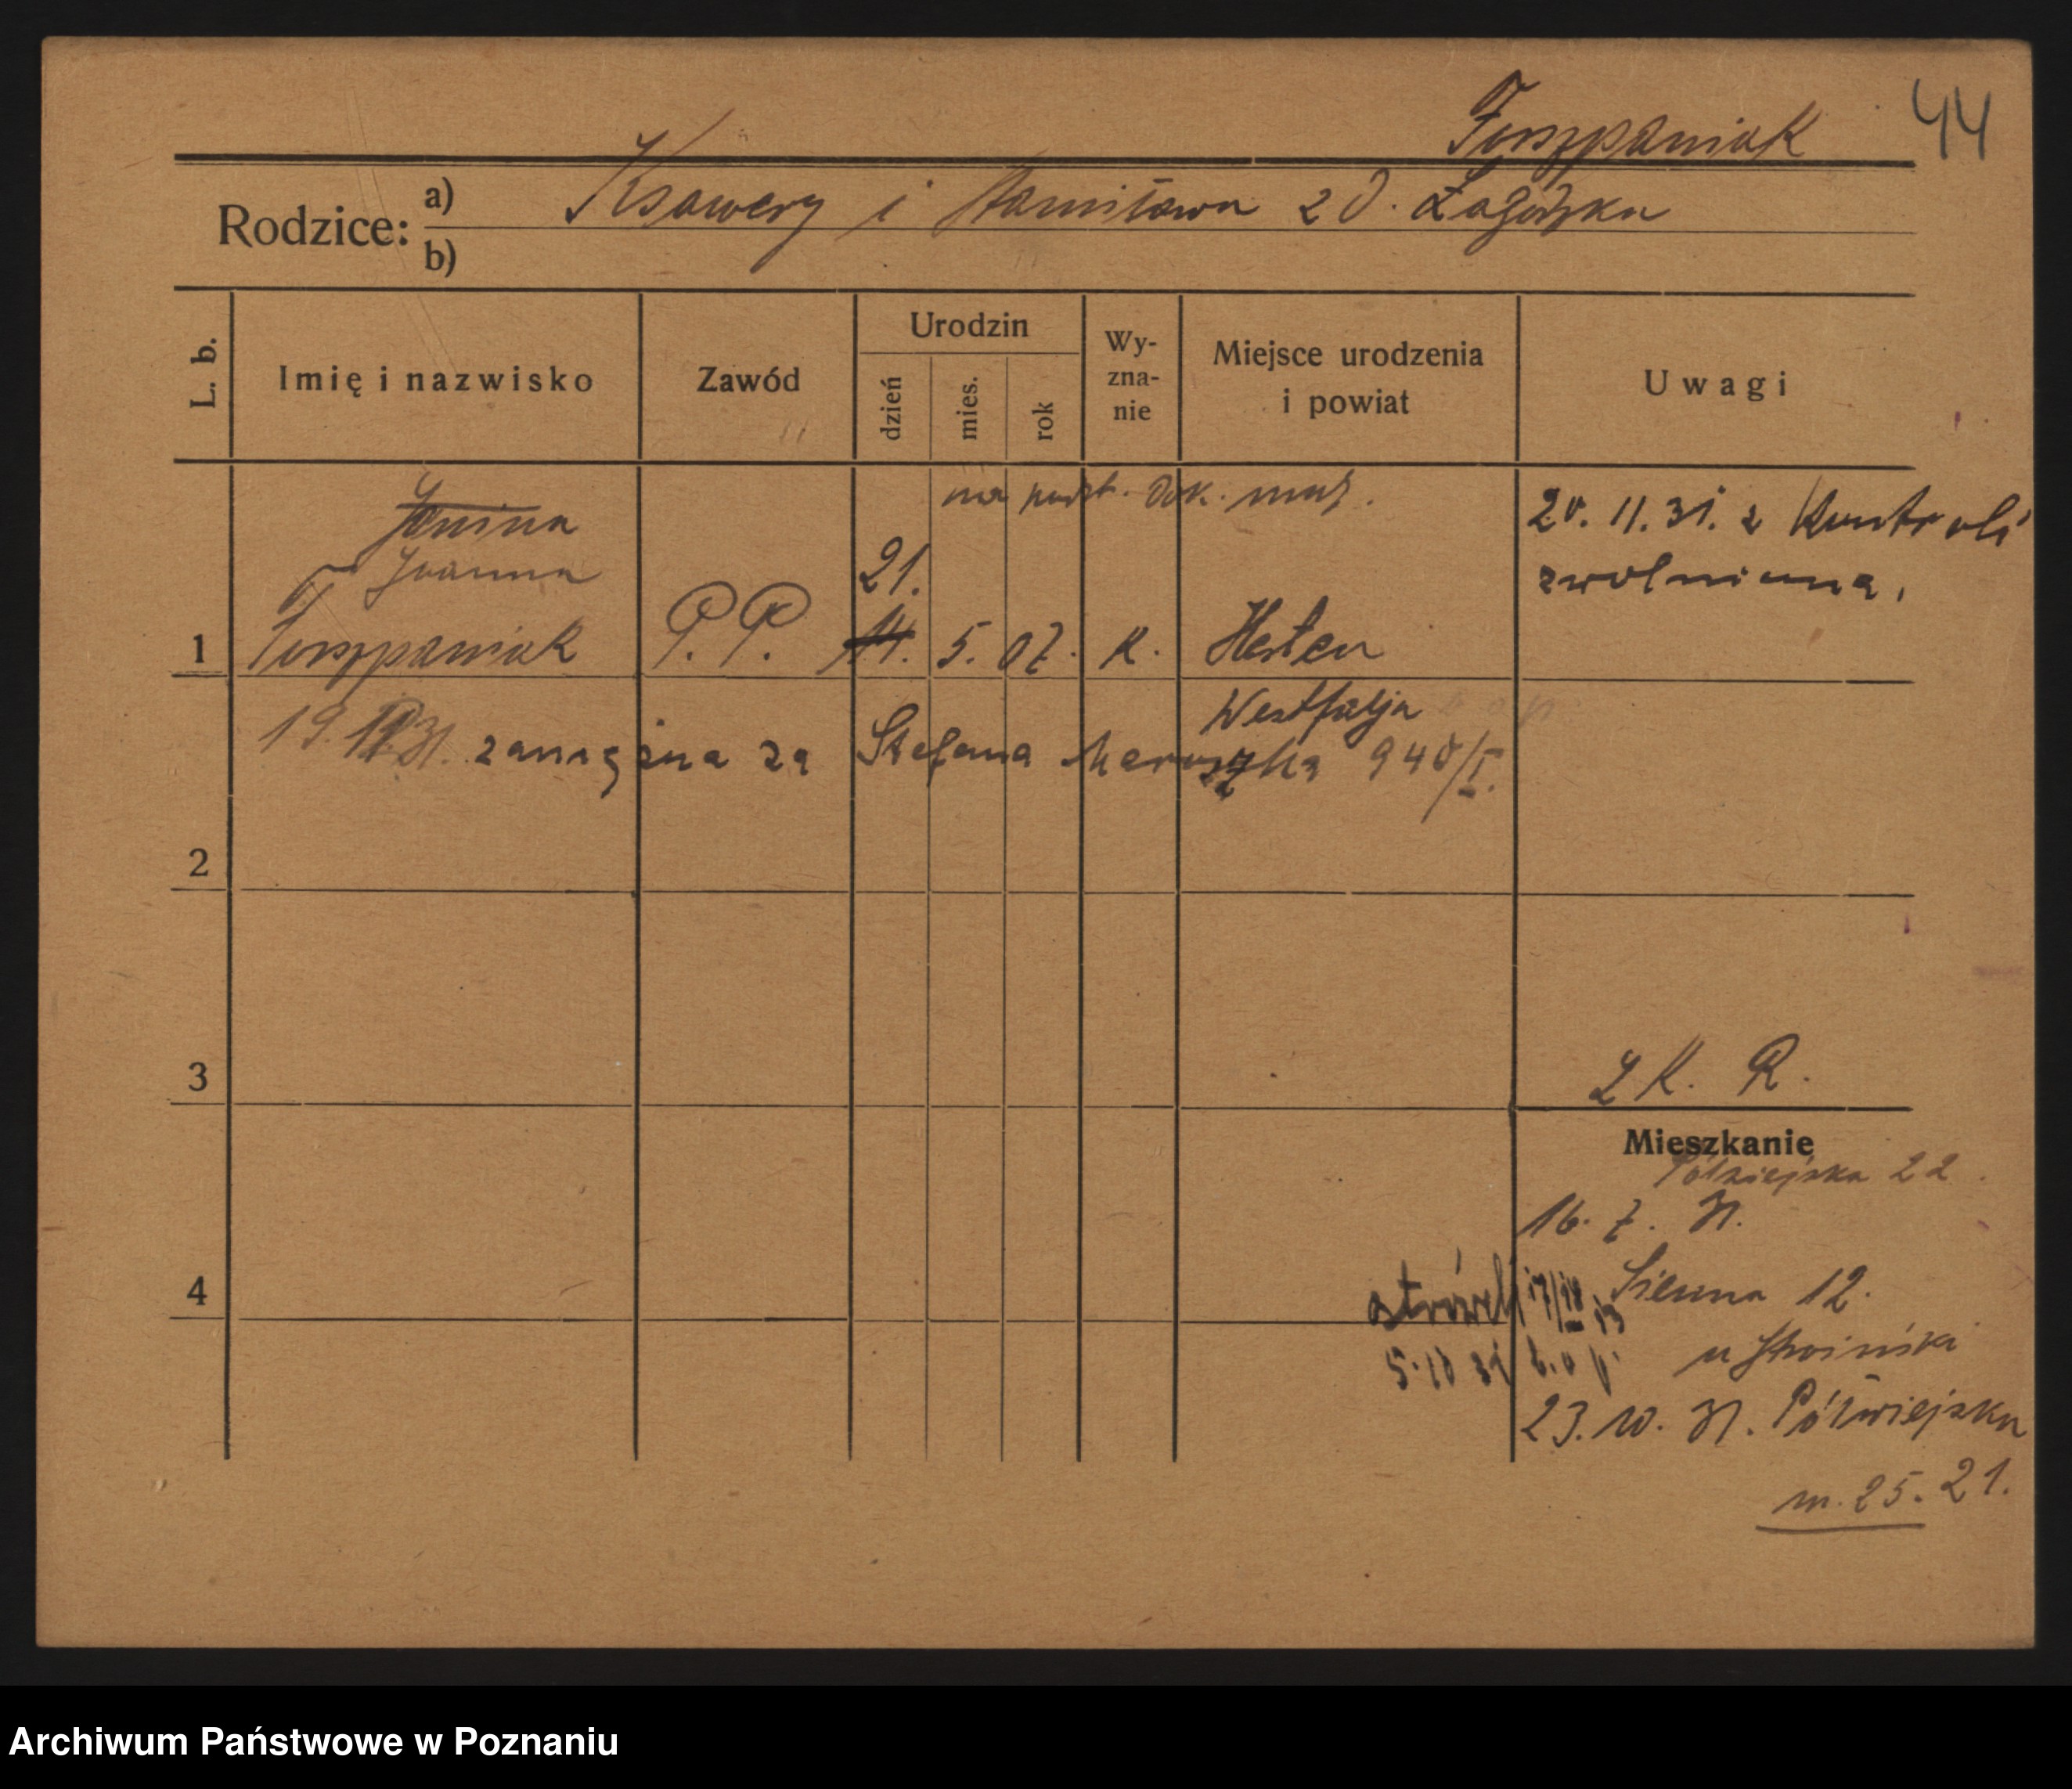 Forszpaniak 44
Rodzice: a) Ksawery i Stanisława z d. Łagódzka
b)
L. b. Imię i nazwisko Zawód Urodzin dzień mies. rok Wy-zna-nie Miejsce urodzenia i powiat Uwagi
na podst. dok. mąż.
Janina
Joanna
1 Forszpaniak P. P. 21. 14. 5. 07. k. Herten
Westfalja
20. 11. 31. z Kontroli
zwolniona.
19. 31. zamężna za Stefana Maruszka 940/I.
2
3
Z K. R.
Mieszkanie
Półwiejska 22.
16. 7. 31.
4
Sienna 12.
u
5. 10 31 b. o p.
23. 10. 31. Półwiejska
m. 25. 21.
Archiwum Państwowe w Poznaniu